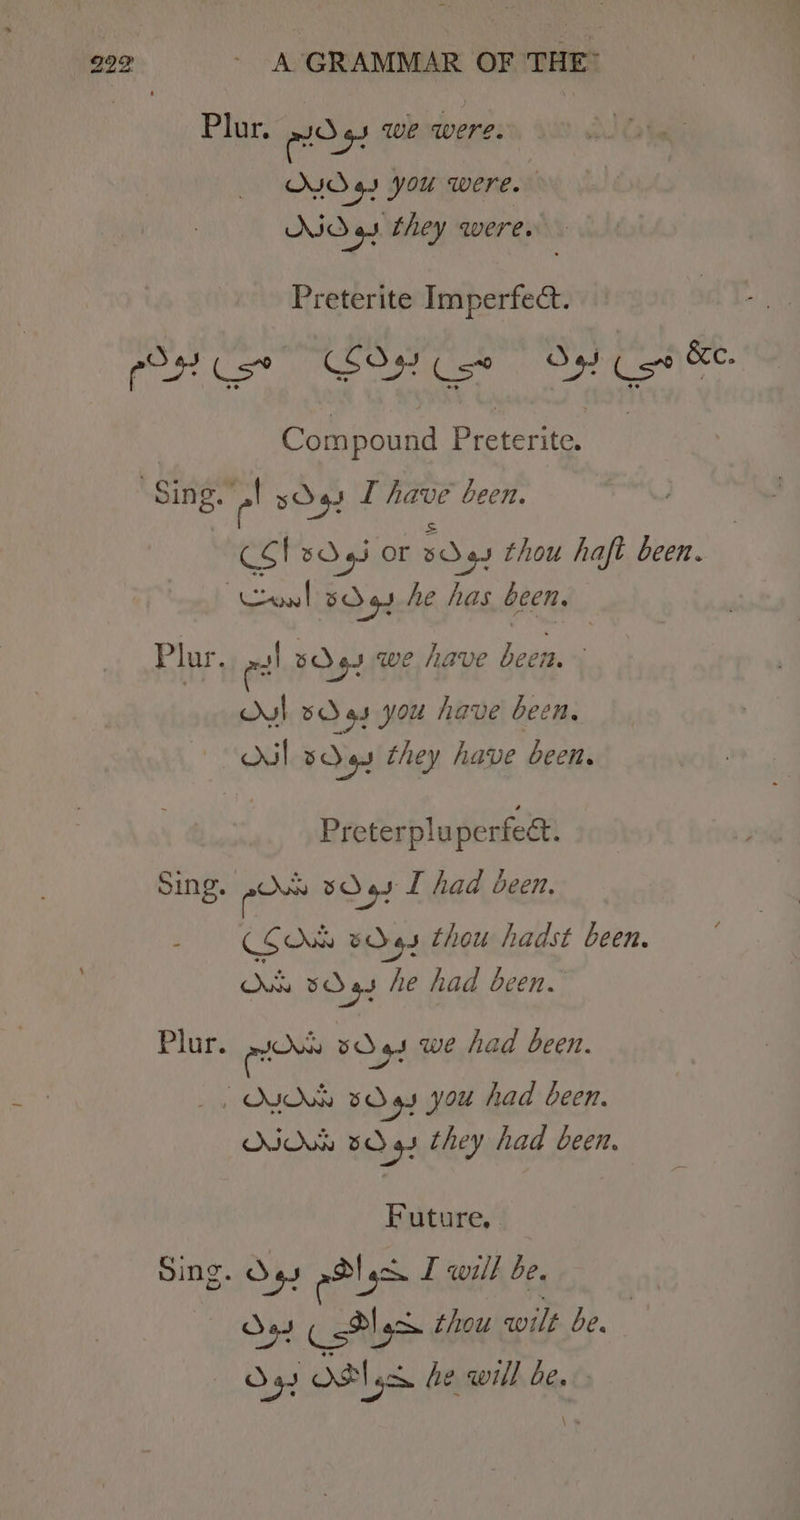 222 A GRAMMAR OF THE
Plur. بودیم we were.
بودید you were.
بودند they were.
Preterite Imperfect.
می بودم می بودی می بود &c.
Compound Preterite.
Sing. بوده ام I have been.
بوده ای or بودهٔ thou haſt been.
بوده است he has been.
Plur. بوده ایم we have been.
بوده اید you have been.
بوده اند they have been.
Preterpluperfect.
Sing. بوده شدم I had been.
بوده شدی thou hadst been.
بوده شد he had been.
Plur. بوده شدیم we had been.
بوده شدید you had been.
بوده شدند they had been.
Future.
Sing. خواهم بود I will be.
خواهی بود thou wilt be.
خواهد بود he will be.